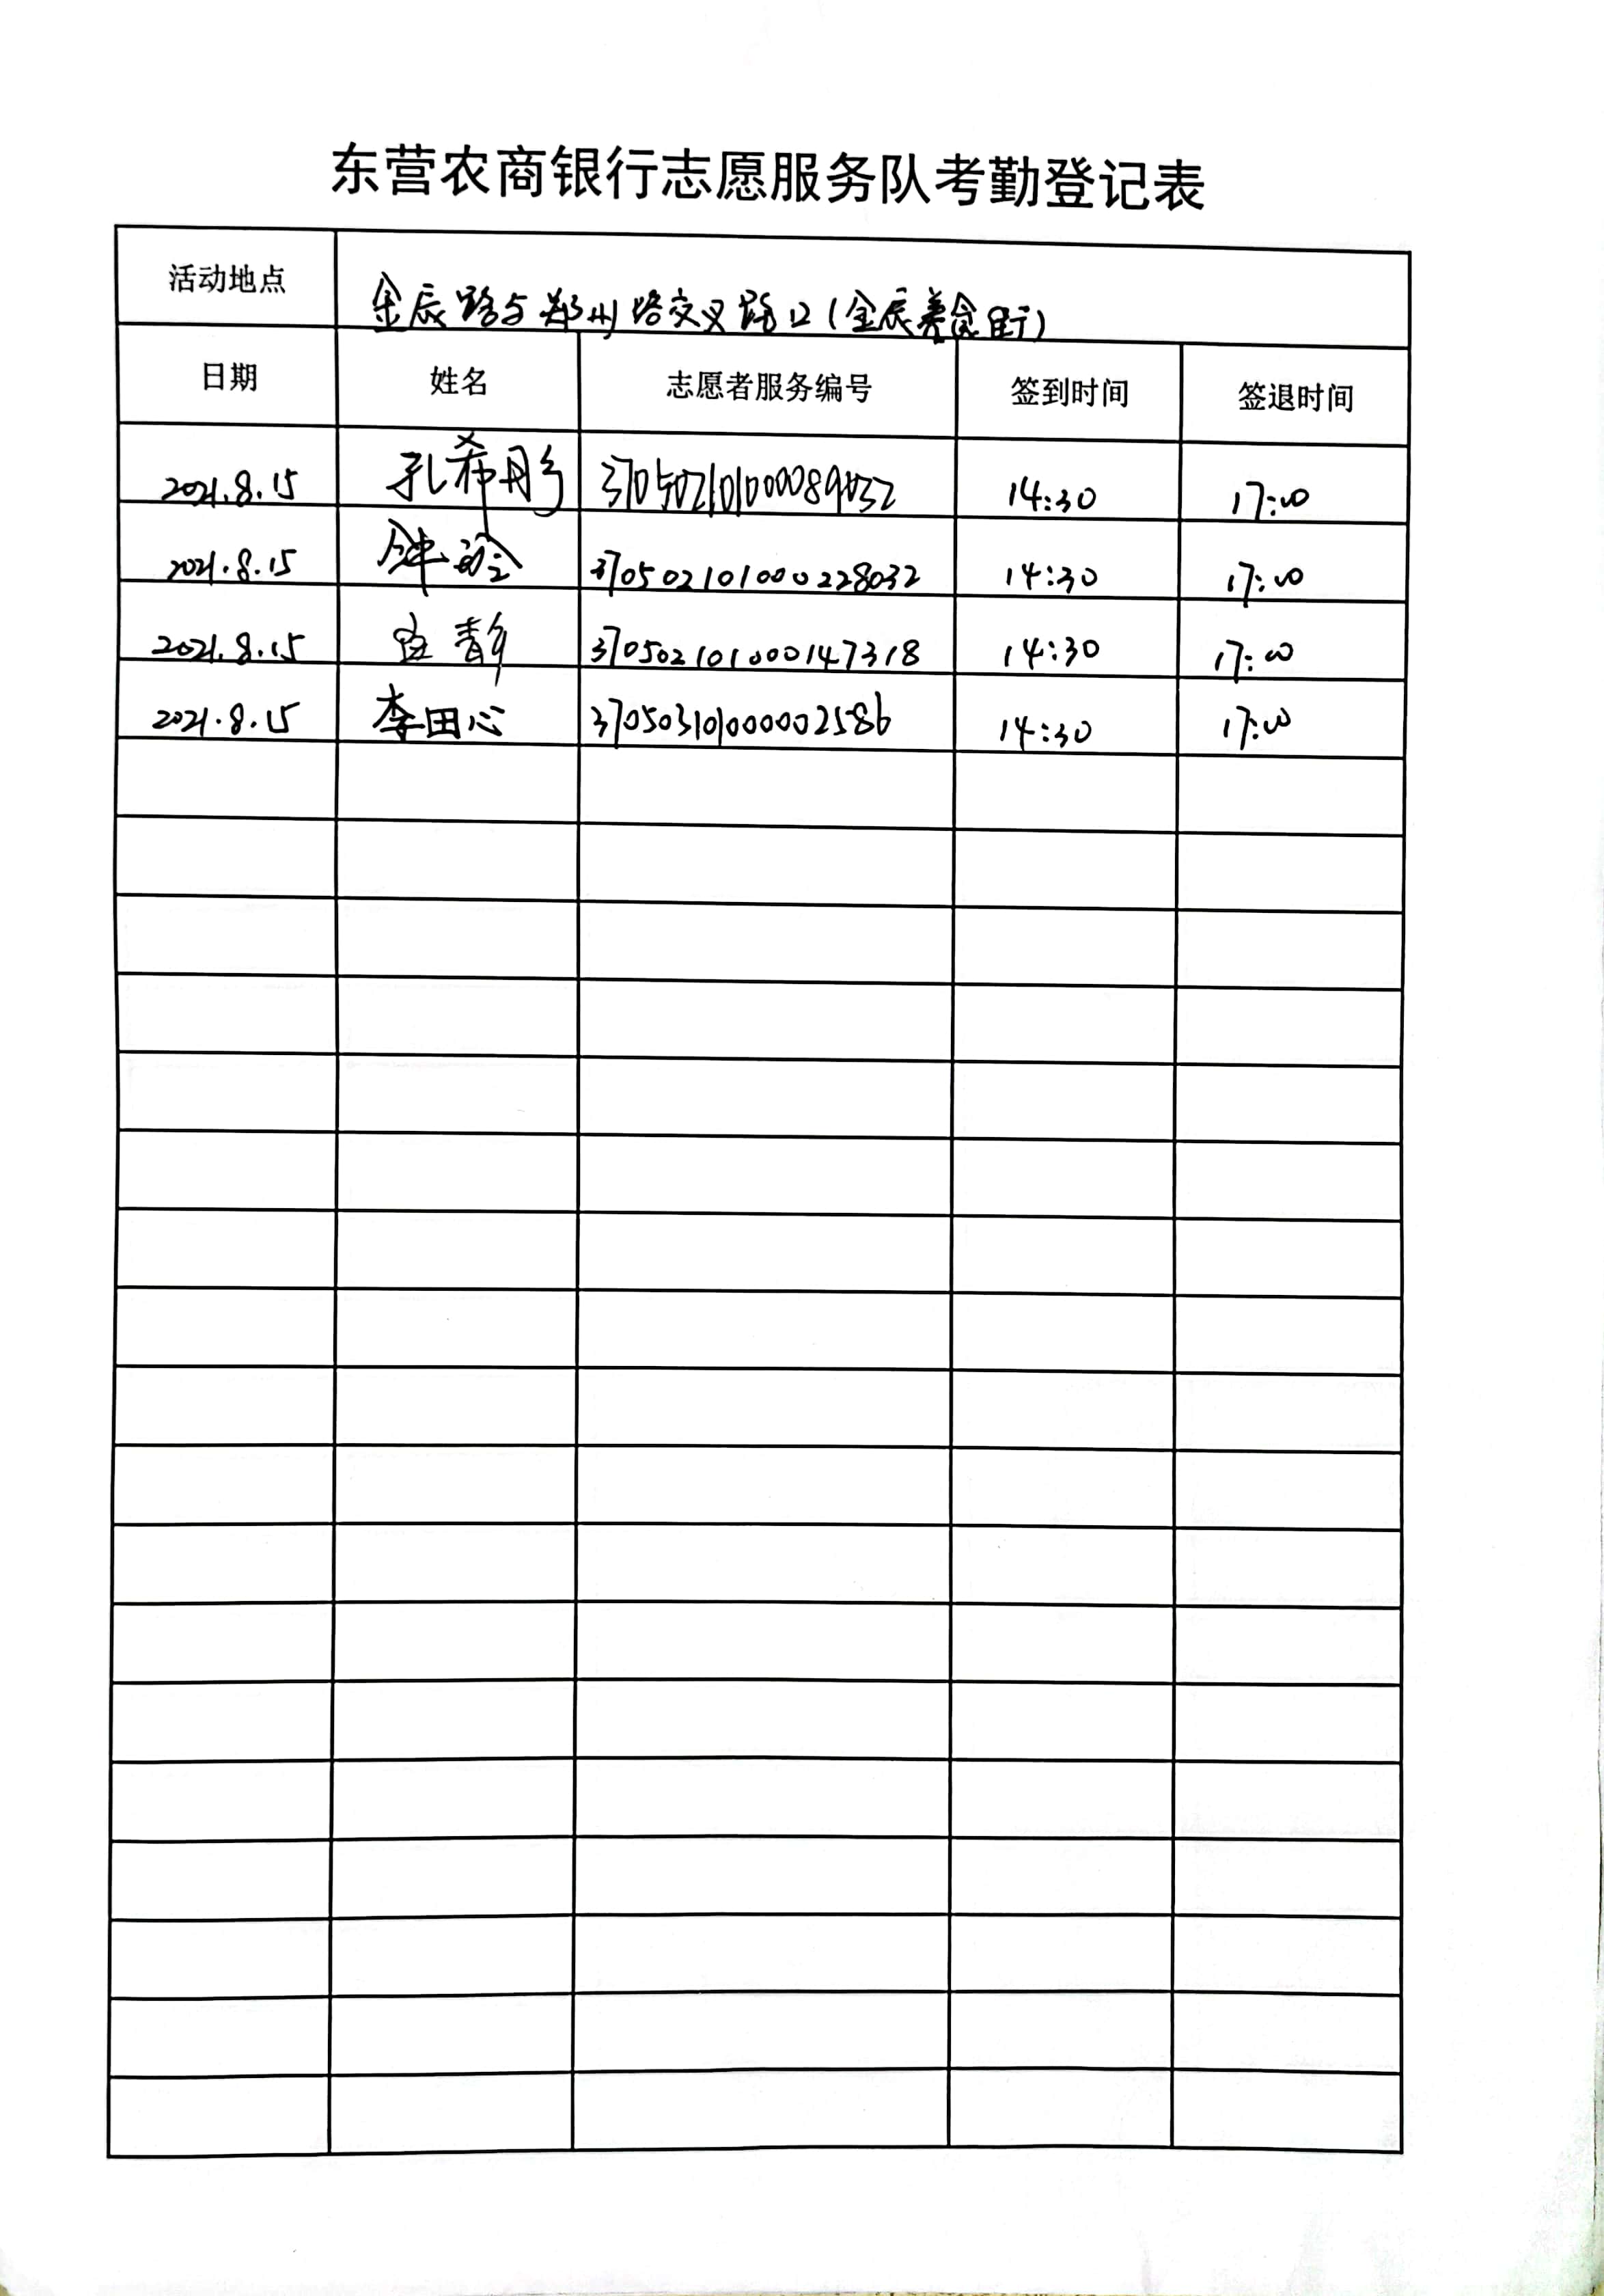 东营农商银行志愿服务队考勤登记表
活动地点 金辰路与郑州路交叉路口(金辰美食街)
日期 姓名 志愿者服务编号 签到时间 签退时间
2021.8.15 孔希彤 14:30 17:00
2021.8.15 370502101000228032 14:30 17:00
2021.8.15 静 370502101000147318 14:30 17:00
2021.8.15 李田心 370503101000002586 14:30 17:00